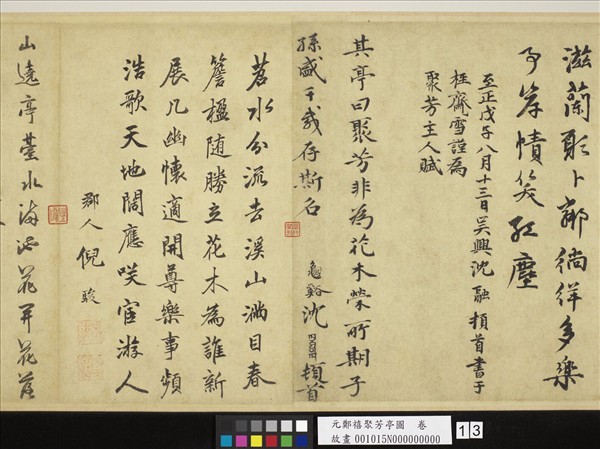 滋蘭取卜鄰徜徉多樂
予岸幘笑紅塵
至正戊子八月十三日吳興沈融頓首書于
桂齋雪謹為
聚芳主人賦
其亭曰聚芳非為花木榮所期子
孫盛千載存斯名
沈 頓首
苕水分流去溪山滿目春
簷楹随勝立花木為誰新
展几幽懷適開尊樂事頻
浩歌天地闊應咲宦游人
郡人倪駿
山遠亭臺水海 花開花落
元鄭禧聚芳亭圖 卷
故畫 001015N000000000
13